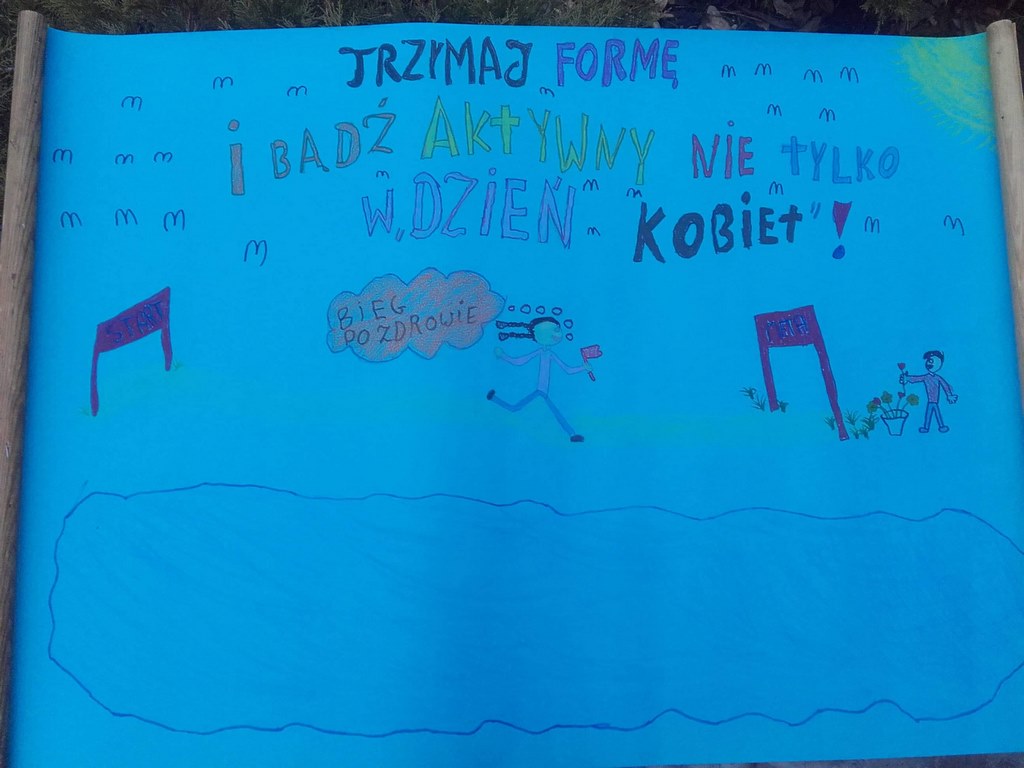 TRZYMAJ FORMĘ
i BĄDŹ AKTYWNY NIE TYLKO
W „DZIEŃ KOBIET” !
START
BIEG
PO ZDROWIE